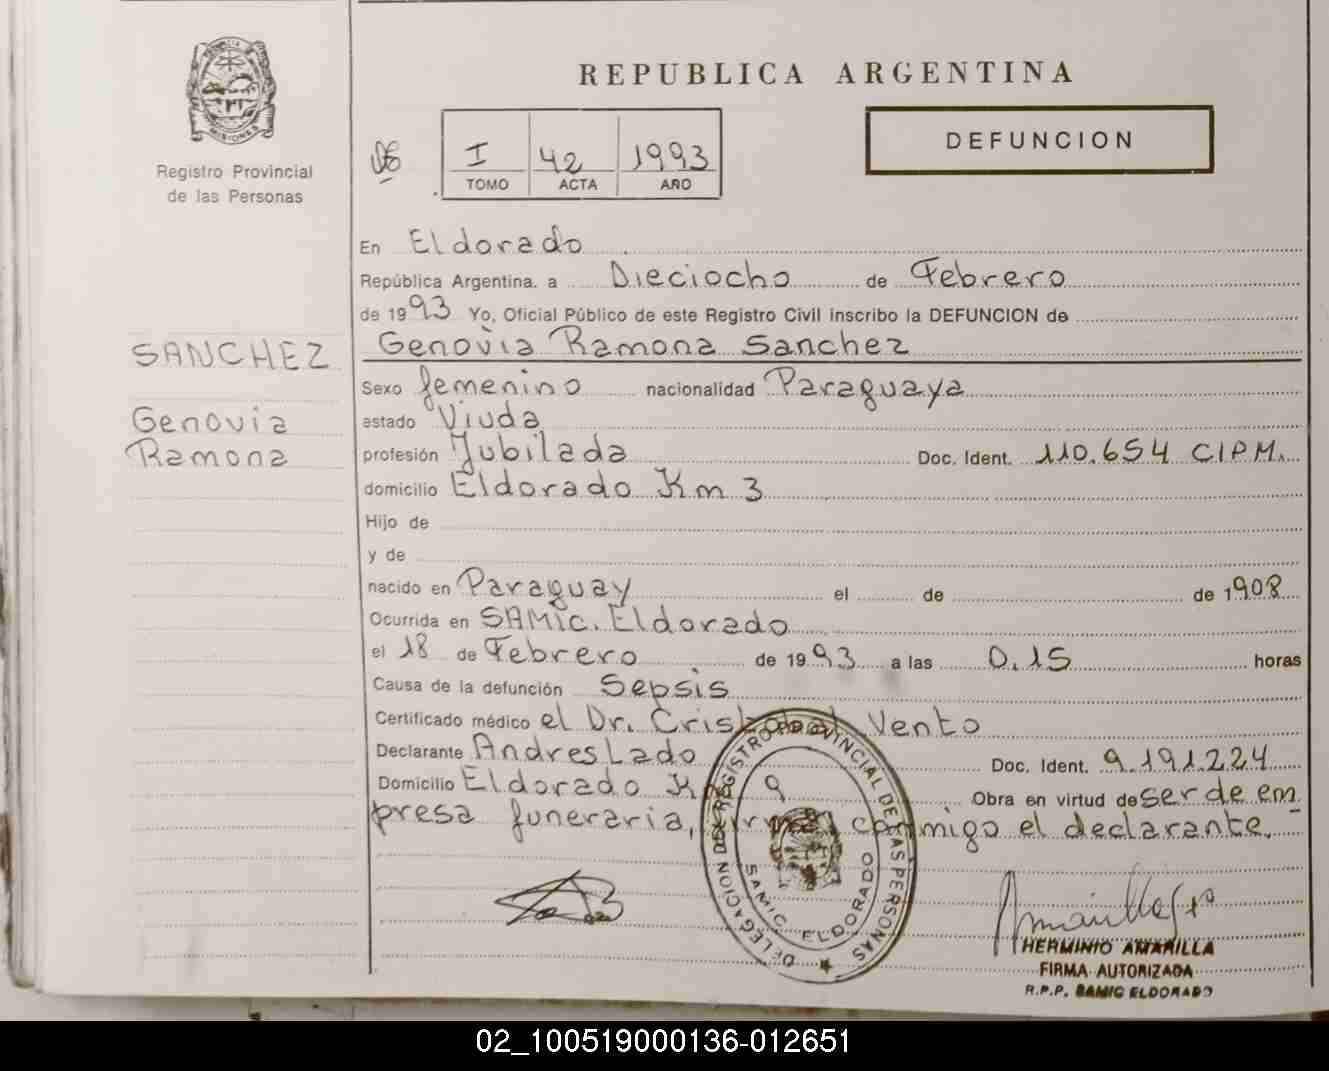 REPUBLICA ARGENTINA
MISIONES
Registro Provincial
de las Personas
I 42 1993
TOMO ACTA AÑO
DEFUNCION
En Eldorado
República Argentina. a Dieciocho de Febrero
de 1993 Yo, Oficial Público de este Registro Civil inscribo la DEFUNCION de
SANCHEZ
Genovia
Ramona
Genovia Ramona Sanchez
Sexo femenino nacionalidad Paraguaya
estado Viuda
profesión Jubilada Doc. Ident. 110.654 CIPM.
domicilio Eldorado Km 3
Hijo de
y de
nacido en Paraguay el de de 1908
Ocurrida en SAMIC. Eldorado
el 18 de Febrero de 1993 a las 0.15 horas
Causa de la defunción Sepsis
Certificado médico el Dr. Cristobal Vento
Declarante Andres Lado Doc. Ident. 9.191.224
Domicilio Eldorado Km 9 Obra en virtud de ser de em
presa funeraria, firma conmigo el declarante.
DELEGACION DEL REGISTRO PROVINCIAL DE LAS PERSONAS
SAMIC ELDORADO
HERMINIO AMARILLA
FIRMA AUTORIZADA
R.P.P. SAMIC ELDORADO
02_100519000136-012651